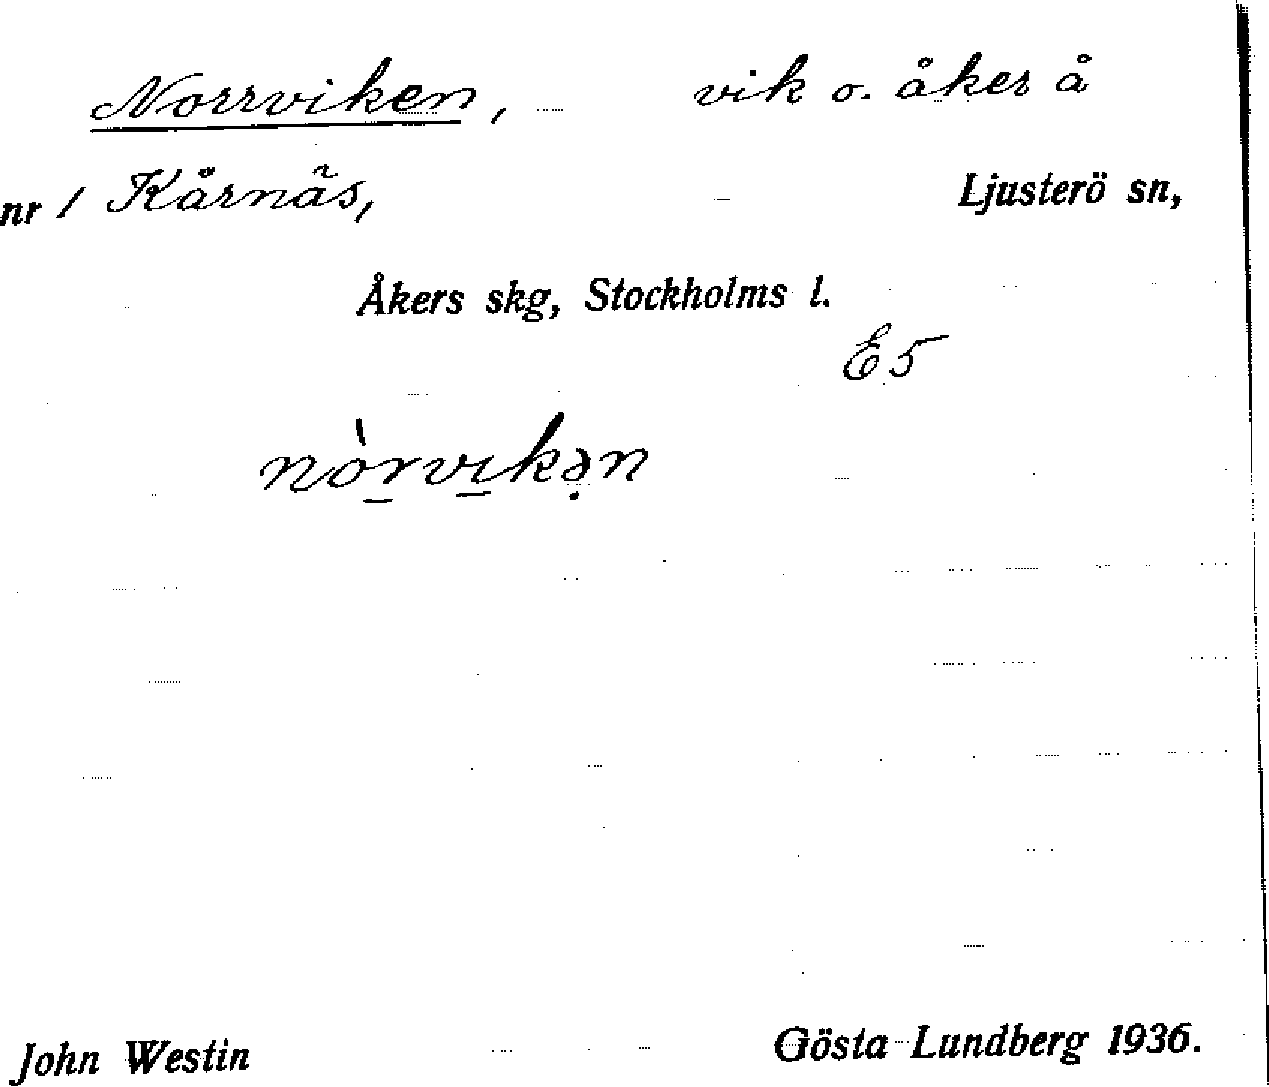 Norrviken, vik o. åker å
nr 1 Kårnäs, Ljusterö sn,
Åkers skg, Stockholms l.
E5
nòrvikən
John Westin Gösta Lundberg 1936.